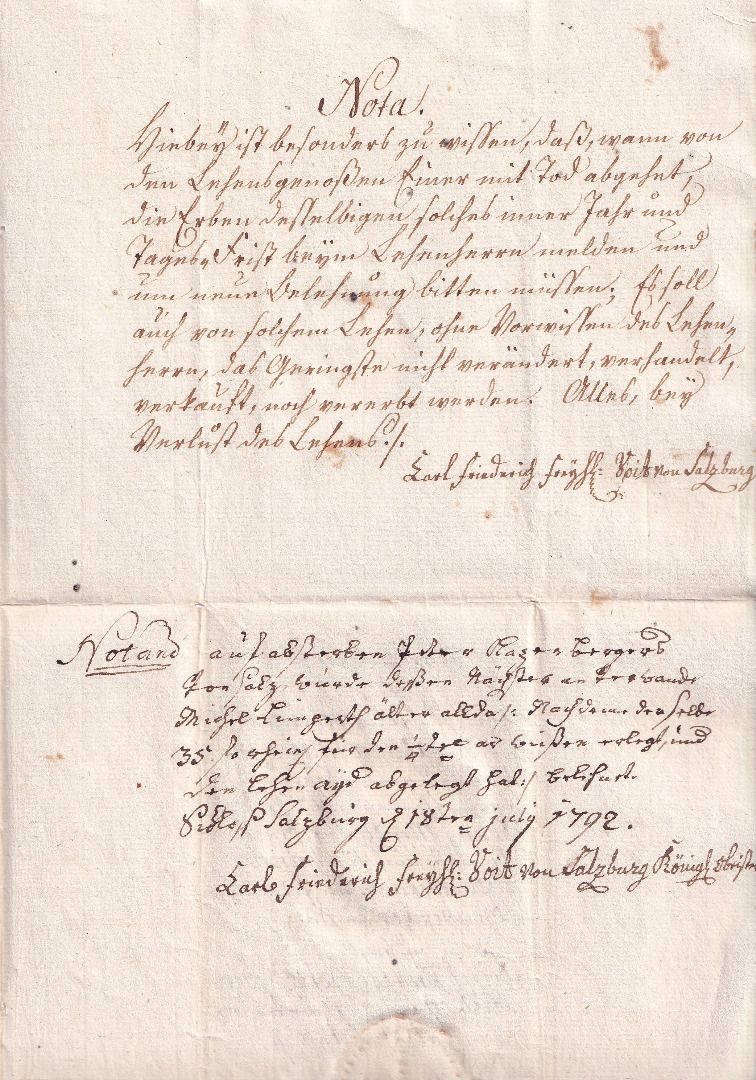 Nota.
Hiebey ist besonders zu wissen, daß, wann von
den Lehensgenoßen Einer mit Tod abgehet,
die Erben desselbigen solches inner Jahr und
Tages-Frist beym Lehenherrn melden und
um neue Belehnung bitten müssen. Es soll
auch von solchem Lehen, ohne Vorwissen des Lehen-
herrn, das Geringste nicht verändert, verhandelt,
verkauft, noch vererbt werden. Alles, bey
Verlust des Lehens./.
Carl Friederich Freyh: Voit von Salzburg
Notand auf absterben Peter Kazenbergers
von Salz, wurde deßen Nächster anverwande
Michel Limperth älter allda /: Nachdeme derselbe
35. fl rhein für den 1/4 tel ar wißen erlegt, und
den lehen ayd abgelegt hat :/ belehnet.
Schloß Salzburg d 18ten july 1792.
Carl Friederich Freyh: Voit von Salzburg Königl